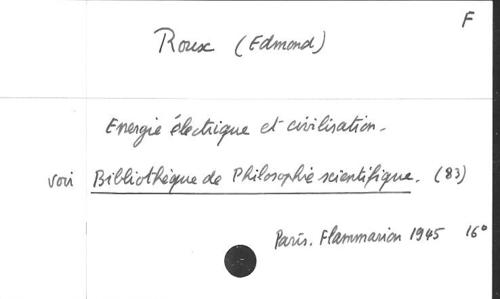 F
Roux (Edmond)
Energie électrique et civilisation.
voir Bibliothèque de Philosophie scientifique. (83)
Paris. Flammarion 1945 16°